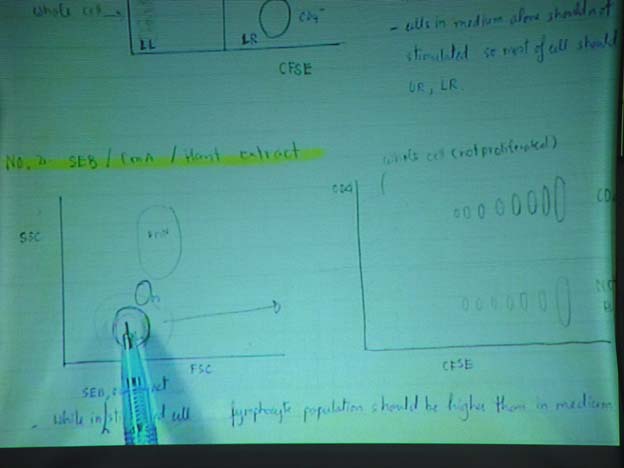 whole cell
CD4⁻
LL
LR
CFSE
- cells in medium alone should not
stimulated so most of cell should
UR, LR.
No. 2 SEB / ConA / Plant extract
whole cell (not proliferated)
CD4
SSC
FSC
CFSE
SEB,
- while in cell lymphocyte population should be higher them in medium